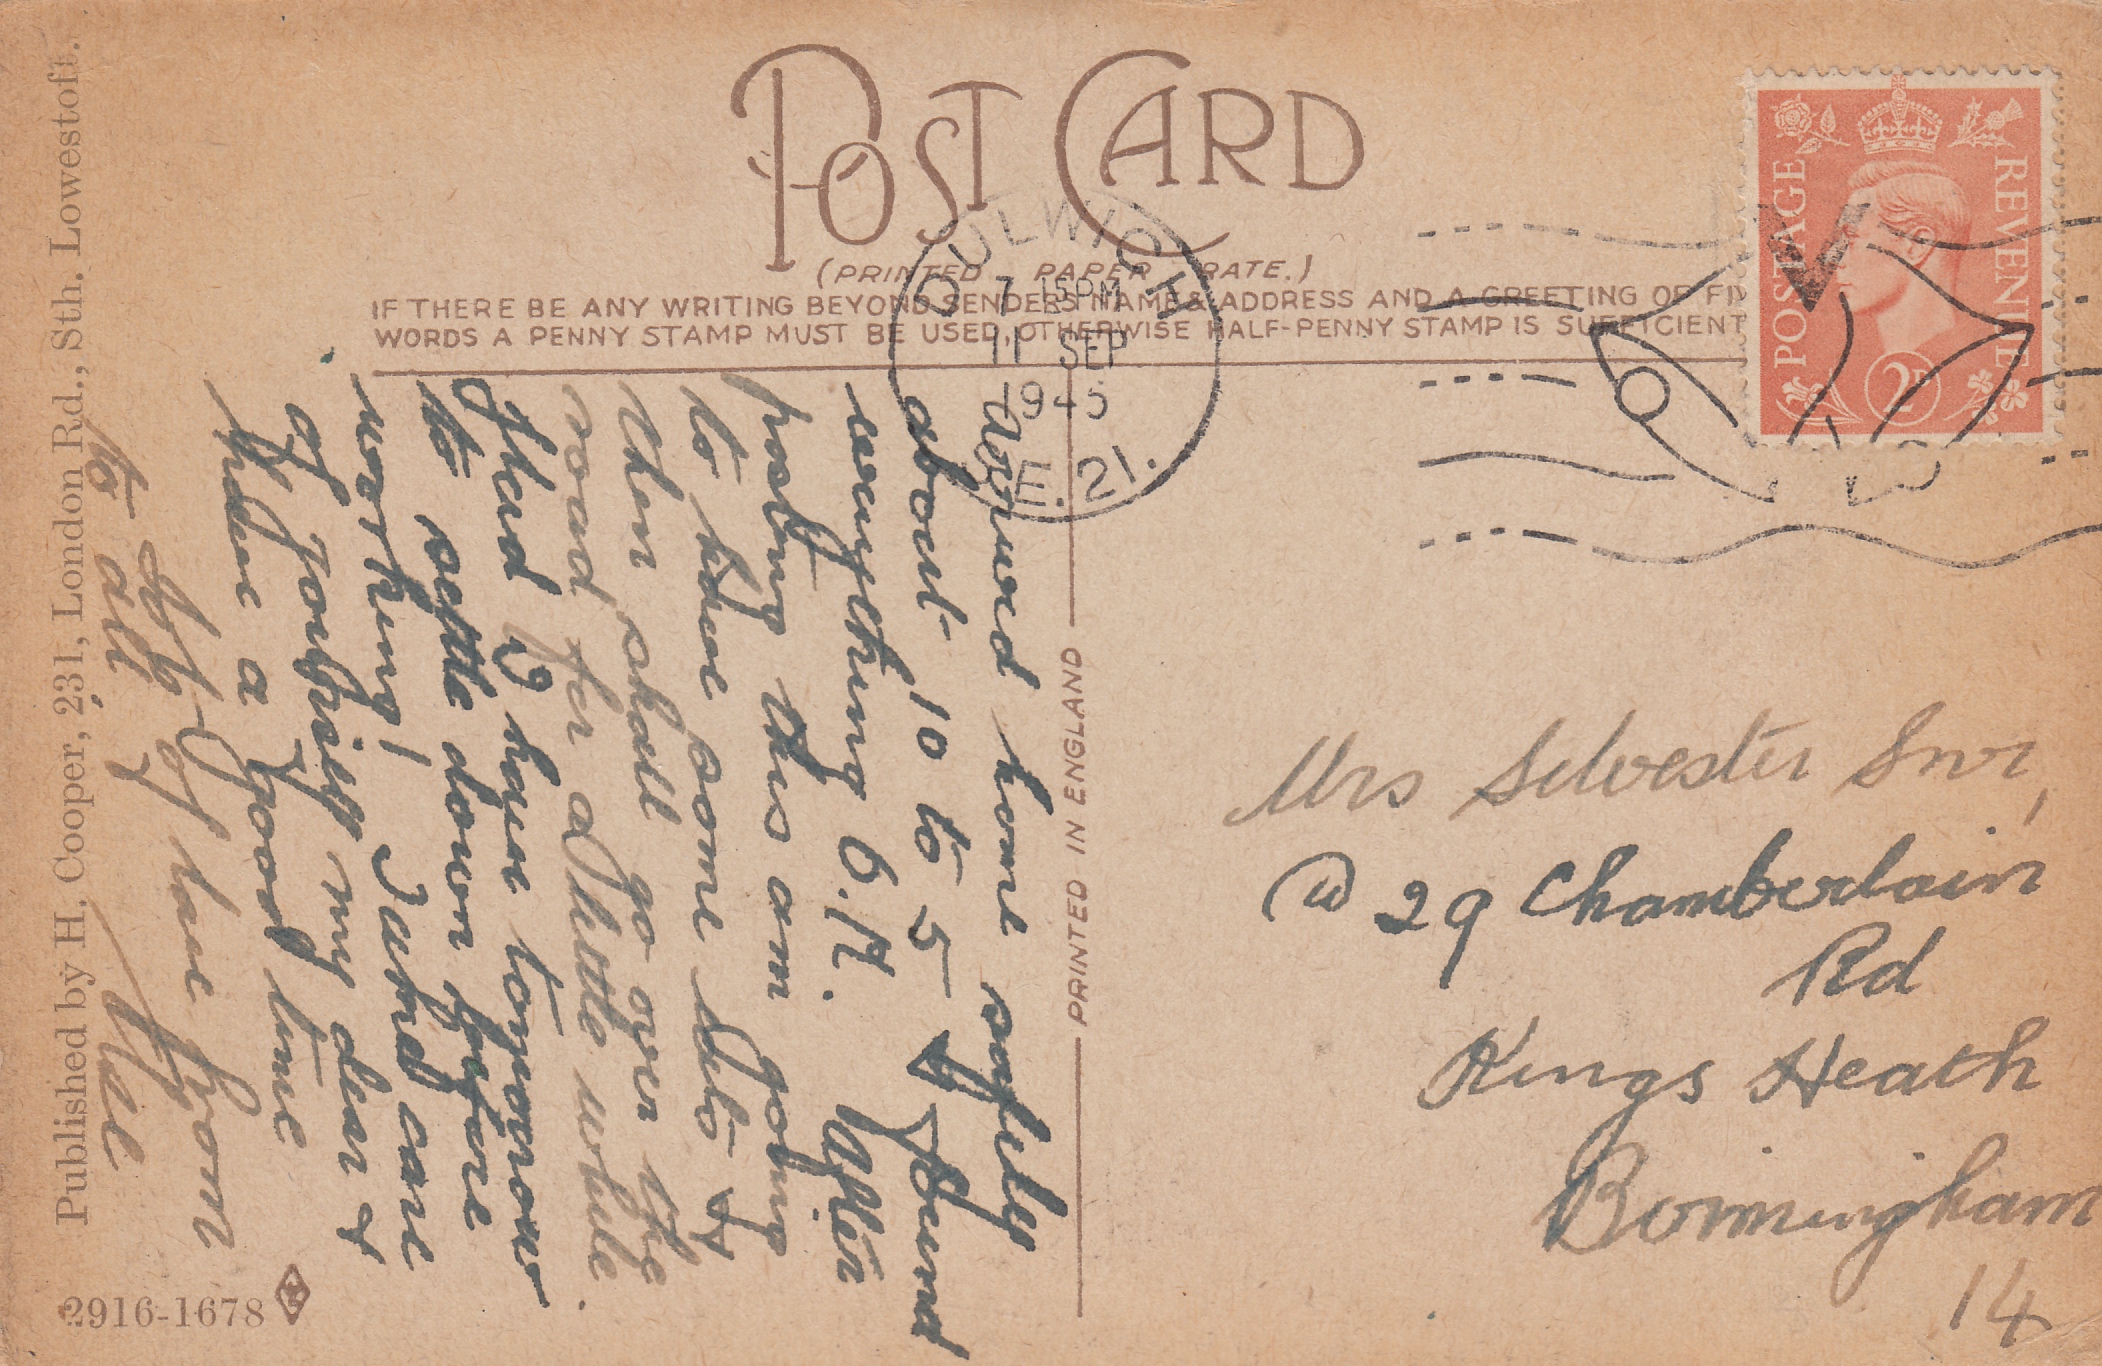 POST CARD
(PRINTED PAPER RATE.)
IF THERE BE ANY WRITING BEYOND SENDERS NAME & ADDRESS AND A GREETING OF FIV
WORDS A PENNY STAMP MUST BE USED, OTHERWISE HALF-PENNY STAMP IS SUFFICIENT
DULWICH
7 15PM
11 SEP
1945
S.E. 21.
POSTAGE
REVENUE
2D
Arrived home safely
about 10 to 5 & found
everything O.K. After
posting this am going
to have some
then shall go over the
road for a little while.
Glad I have tomorrow
to settle down before
working! Take care
of yourself my dear &
have a good time
of love from
to all
Mrs Silvester Snr,
29 Chamberlain
Rd
Kings Heath
Birmingham
14
PRINTED IN ENGLAND
Published by H. Cooper, 231, London Rd., Sth. Lowestoft.
2916-1678